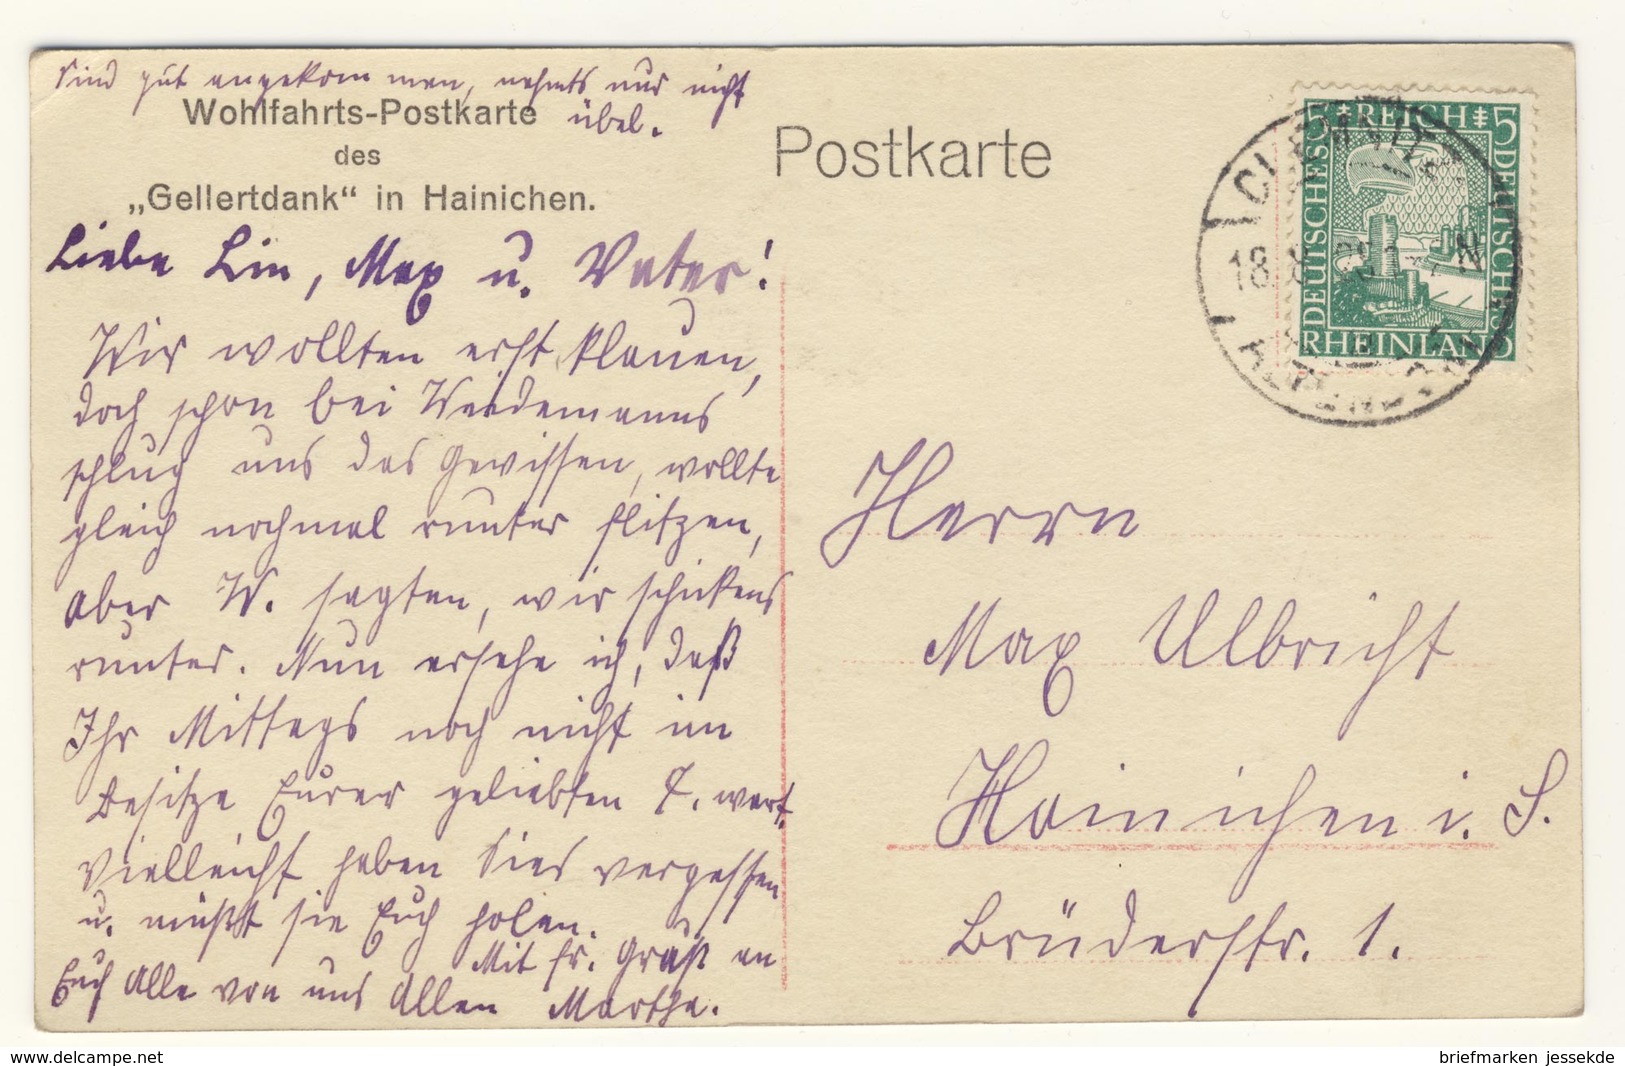 Sind gut angekommen, nehmts nur nicht
übel.
Wohlfahrts-Postkarte
des
„Gellertdank“ in Hainichen.
Postkarte
5 REICH 5
DEUTSCHES
DEUTSCHES
RHEINLAND
CHEMNITZ
18
N
Liebe Lin, Max u. Vater!
Wir wollten erst klauen,
doch schon bei Weidemanns
schlug uns das Gewissen, wollte
gleich nochmal runter flitzen,
aber W. sagten, wir schickens
runter. Nun ersehe ich, daß
Ihr Mittags noch nicht im
Besitze Eurer geliebten T. wart.
Vielleicht haben Sies vergessen
u. müßt sie Euch holen.
Mit fr. Gruß an
Euch Alle von uns Allen Marthe.
Herrn
Max Ulbricht
Hainichen i. S.
Brüderstr. 1.
briefmarken-welt.com
briefmarken jessekde